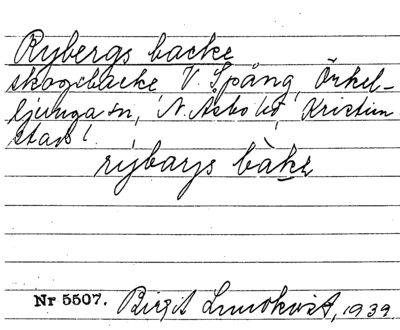 Rybergs backe
skogsbacke V. Spång, Örkel-
ljunga sn, N. Åsbo hd, Kristian
stads l.
rýbarys bàkɛ
Nr 5507. Birgit Lundkvist, 1939